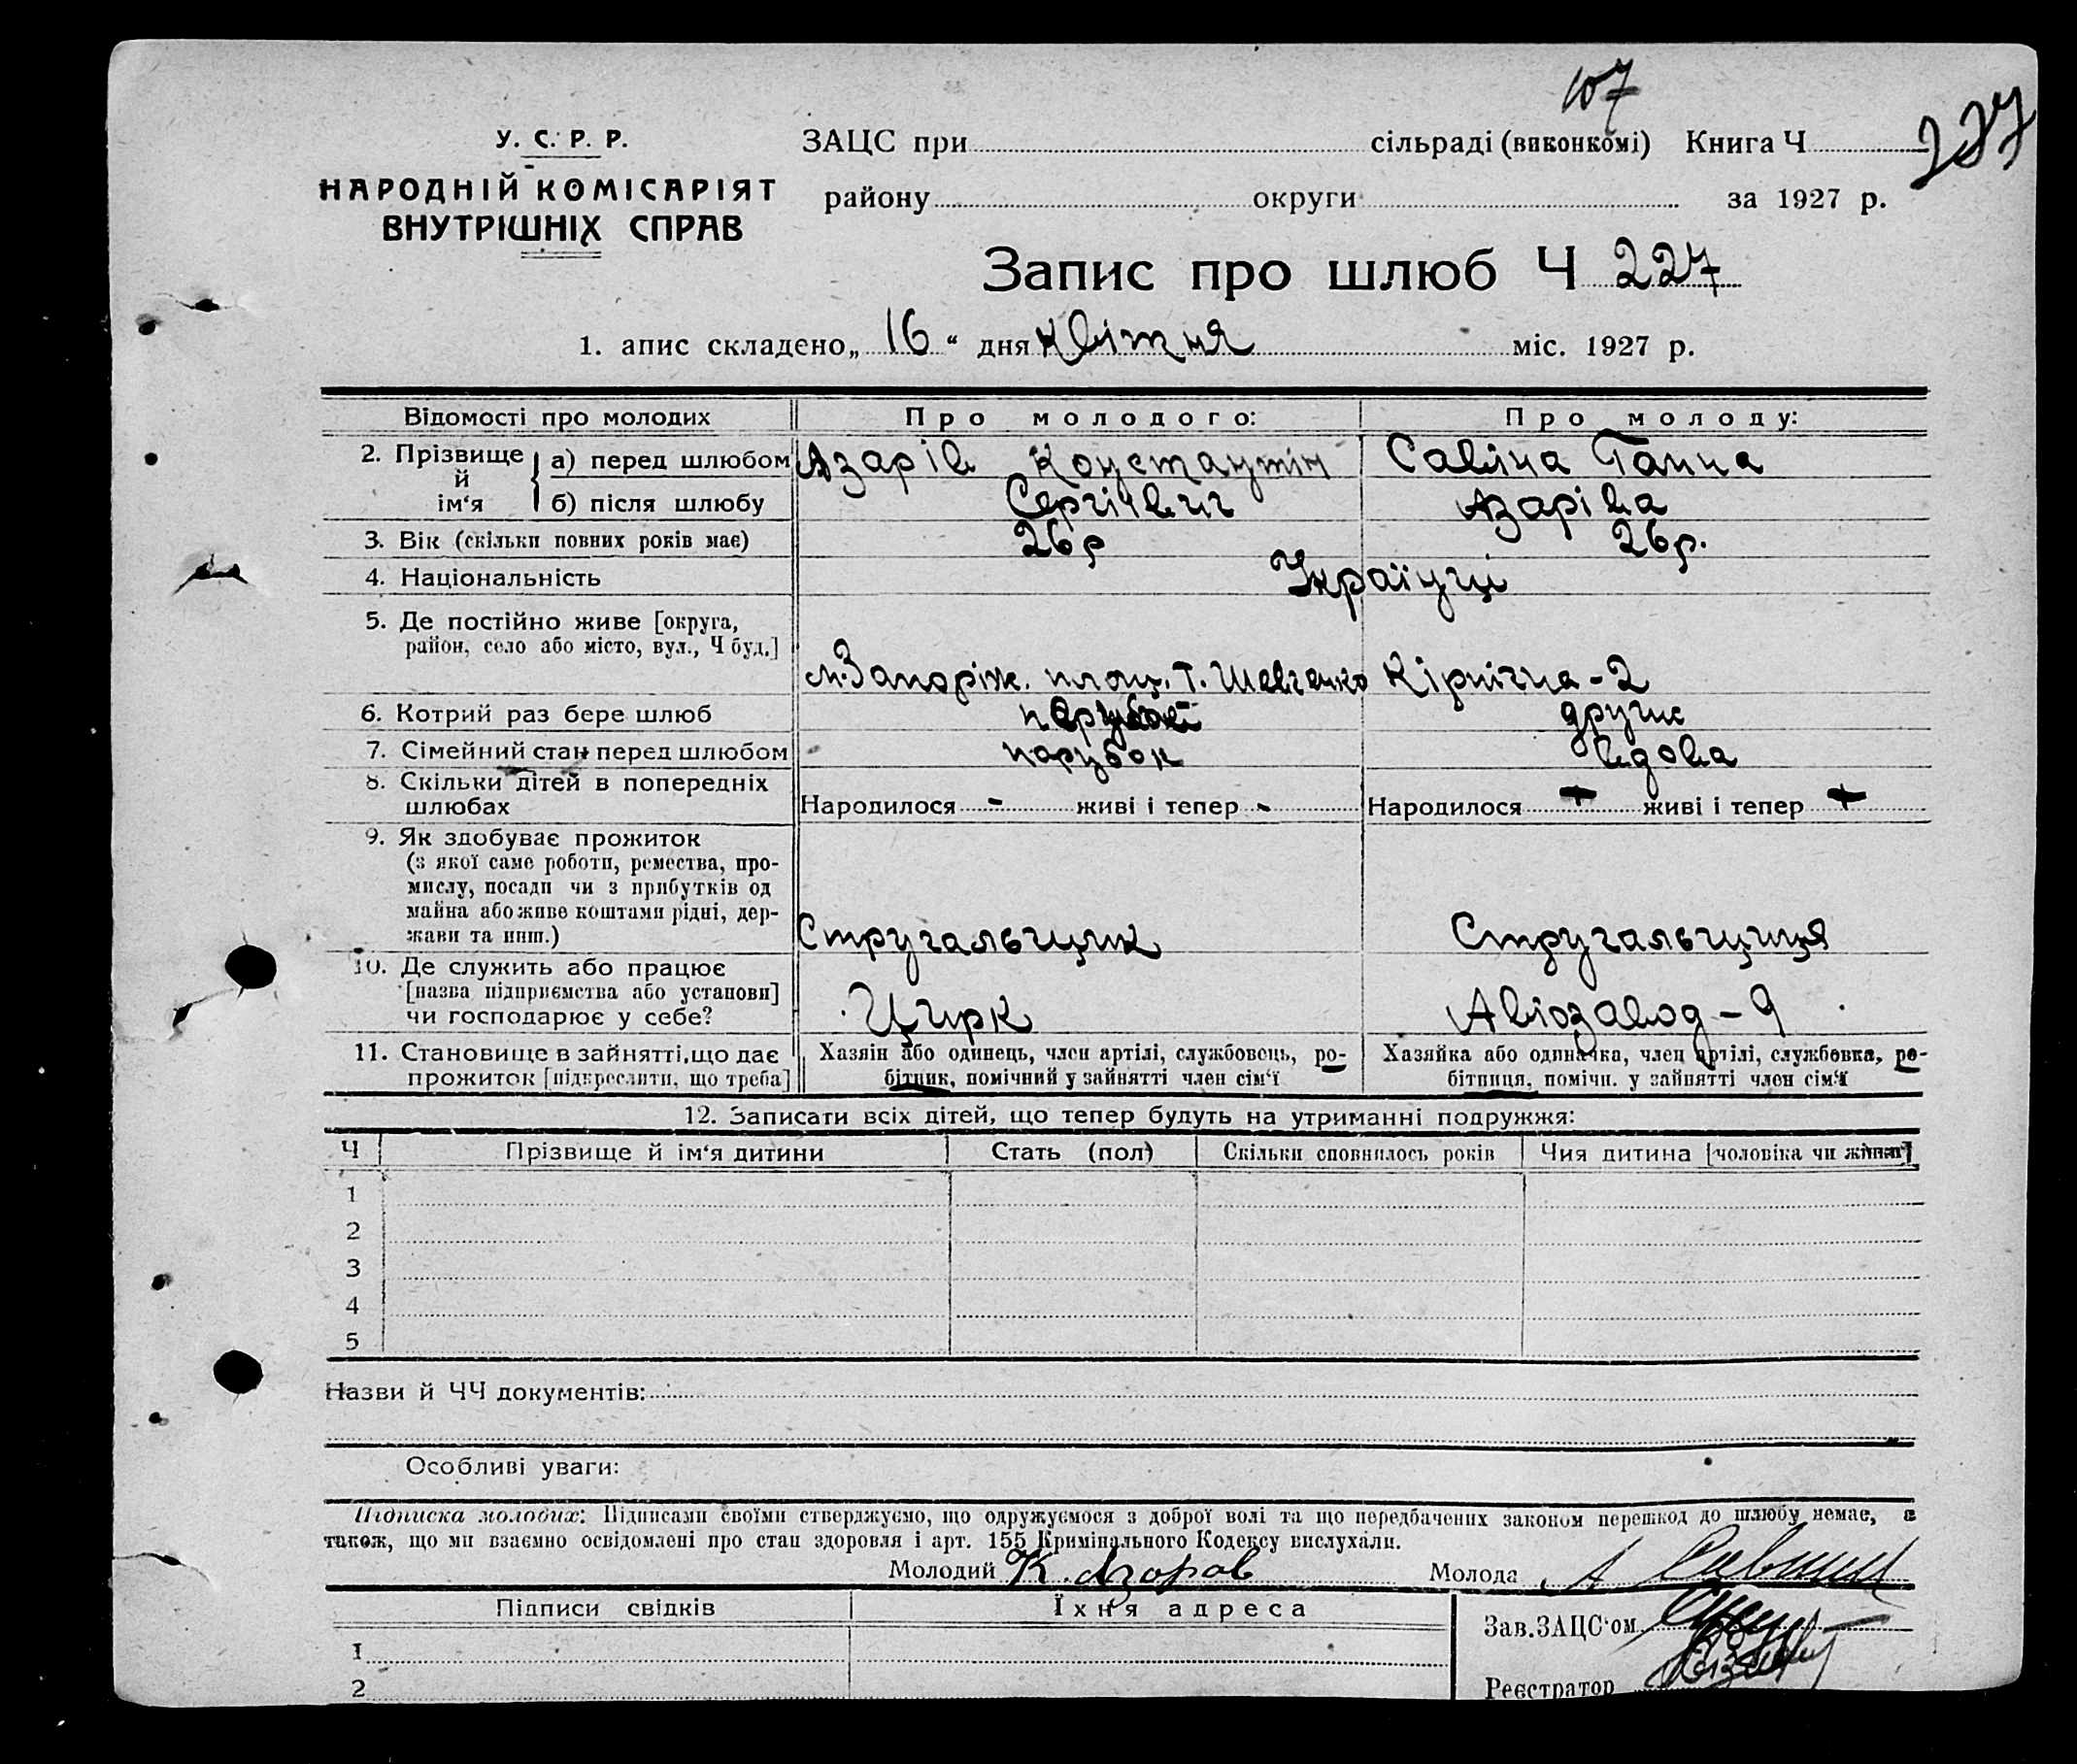 107
У. С. Р. Р.
НАРОДНІЙ КОМІСАРІЯТ
ВНУТРІШНІХ СПРАВ
ЗАЦС при сільраді (виконкомі) Книга Ч 227
району округи за 1927 р.
Запис про шлюб Ч 227
1. апис складено „16“ дня квітня міс. 1927 р.
Відомості про молодих Про молодого: Про молоду:
2. Прізвище й ім‘я а) перед шлюбом Азарів Константин Савіна Ганна
б) після шлюбу Сергієвич Азаріва
3. Вік (скільки повних років має) 26 р 26 р.
4. Національність Українці
5. Де постійно живе [округа,
район, село або місто, вул., Ч буд.]
м. Запоріж. площ. Т. Шевченко Кірпічна - 2
6. Котрий раз бере шлюб другий
7. Сімейний стан перед шлюбом парубок вдова
8. Скільки дітей в попередніх
шлюбах Народилося - живі і тепер - Народилося + живі і тепер +
9. Як здобуває прожиток
(з якої саме роботи, ремества, про-
мислу, посади чи з прибутків од
майна або живе коштами рідні, дер-
жави та инш.) Стругальщик Стругальщиця
10. Де служить або працює
[назва підприємства або установи]
чи господарює у себе? Цирк Авіозавод - 9
11. Становище в зайнятті, що дає Хазяін або одинець, член артілі, службовець, ро- Хазяйка або одиначка, член артілі, службовка, ро-
прожиток [підкреслити, що треба] бітник, помічний у зайнятті член сім‘ї бітниця, помічн. у зайнятті член сім‘ї
12. Записати всіх дітей, що тепер будуть на утриманні подружжя:
Ч Прізвище й ім‘я дитини Стать (пол) Скільки сповнилось років Чия дитина [чоловіка чи жінки]
1
2
3
4
5
Назви й ЧЧ документів:
Особливі уваги:
Підписка молодих: Підписами своїми стверджуємо, що одружуємося з доброї волі та що передбачених законом перешкод до шлюбу немає, а
також, що ми взаємно освідомлені про стан здоровля і арт. 155 Кримінального Кодексу вислухали.
Молодий К. Азаров Молода А
Підписи свідків Їхня адреса
Зав. ЗАЦС‘ом
1
Реєстратор
2